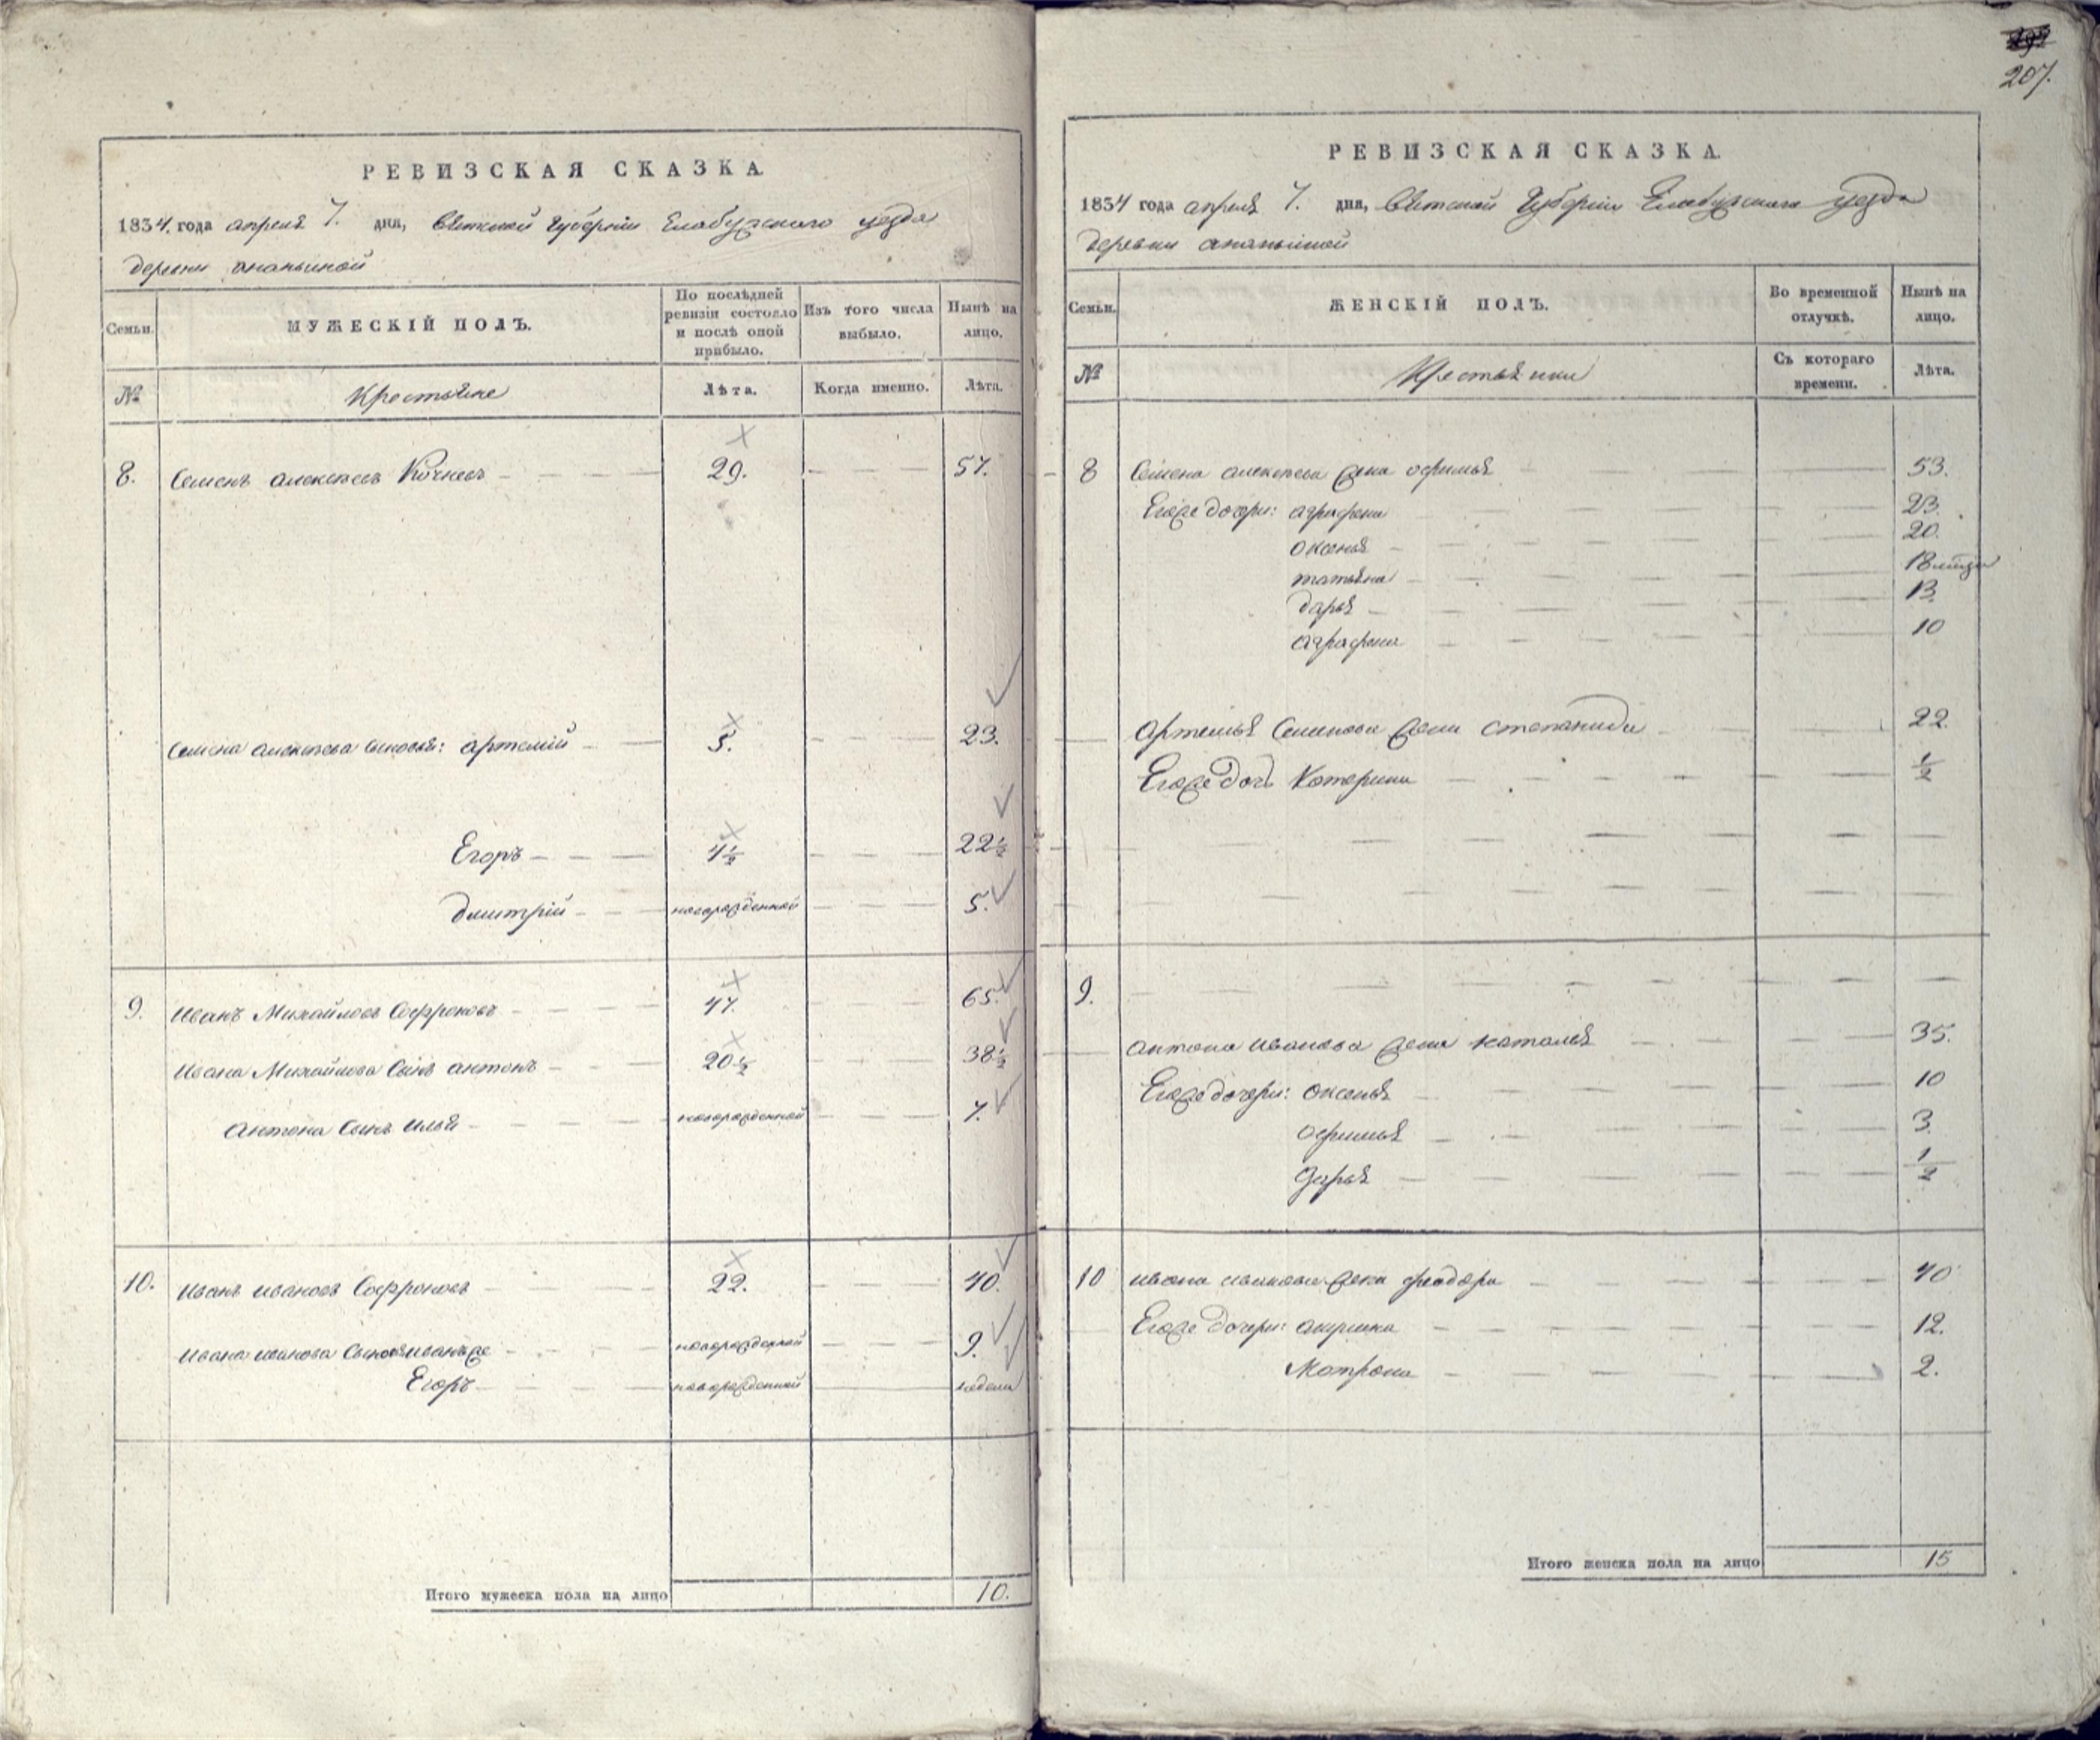 РЕВИЗСКАЯ СКАЗКА.
1834. года апреля 7. дня, Вятской Губернiи Елабужского уезда
деревни ананьиной
Семьи.
МУЖЕСКІЙ ПОЛЪ.
По послѣдней ревизіи состояло и послѣ оной прибыло.
Изъ того числа выбыло.
Нынѣ на лицо.
№
Крестьяне
Лѣта.
Когда именно.
Лѣта.
8. Семенъ алексѣевъ 29. 57.
Семена алексѣева сыновья: артемiй 5. 23.
Егоръ 4½ 22½
дмитрiй новорожденной 5.
9. Иванъ Михайловъ Софроновъ 47. 65.
Ивана Михайлова Сынъ антонъ 20½ 38½
Антона Сынъ илья новорожденной 7.
10. Иванъ ивановъ Софроновъ 22. 40.
Ивана иванова Сыновья иванъ же новорожденной 9.
Егоръ новорожденной недели
Итого мужеска пола на лицо 10.
207.
РЕВИЗСКАЯ СКАЗКА.
1834 года апреля 7. дня, Вятской Губернiи Елабужского уезда
деревни ананьиной
Семьи.
ЖЕНСКІЙ ПОЛЪ.
Во временной отлучкѣ.
Нынѣ на лицо.
№
Крестьянки
Съ котораго времени.
Лѣта.
8 Семена алексѣева жена офимья 53.
Егоже дочери: аграфена 23.
оксенья 20.
татьяна 18
дарья 13.
аграфена 10
Артемья Семенова жена степанида 22.
Егоже дочь Катерина ½
9.
антона иванова жена наталья 35.
Егоже дочери: оксенья 10
офимья 3.
дарья ½
10 ивана иванова жена федора 40
Егоже дочери: 12.
Матрена 2.
Итого женска пола на лицо 15